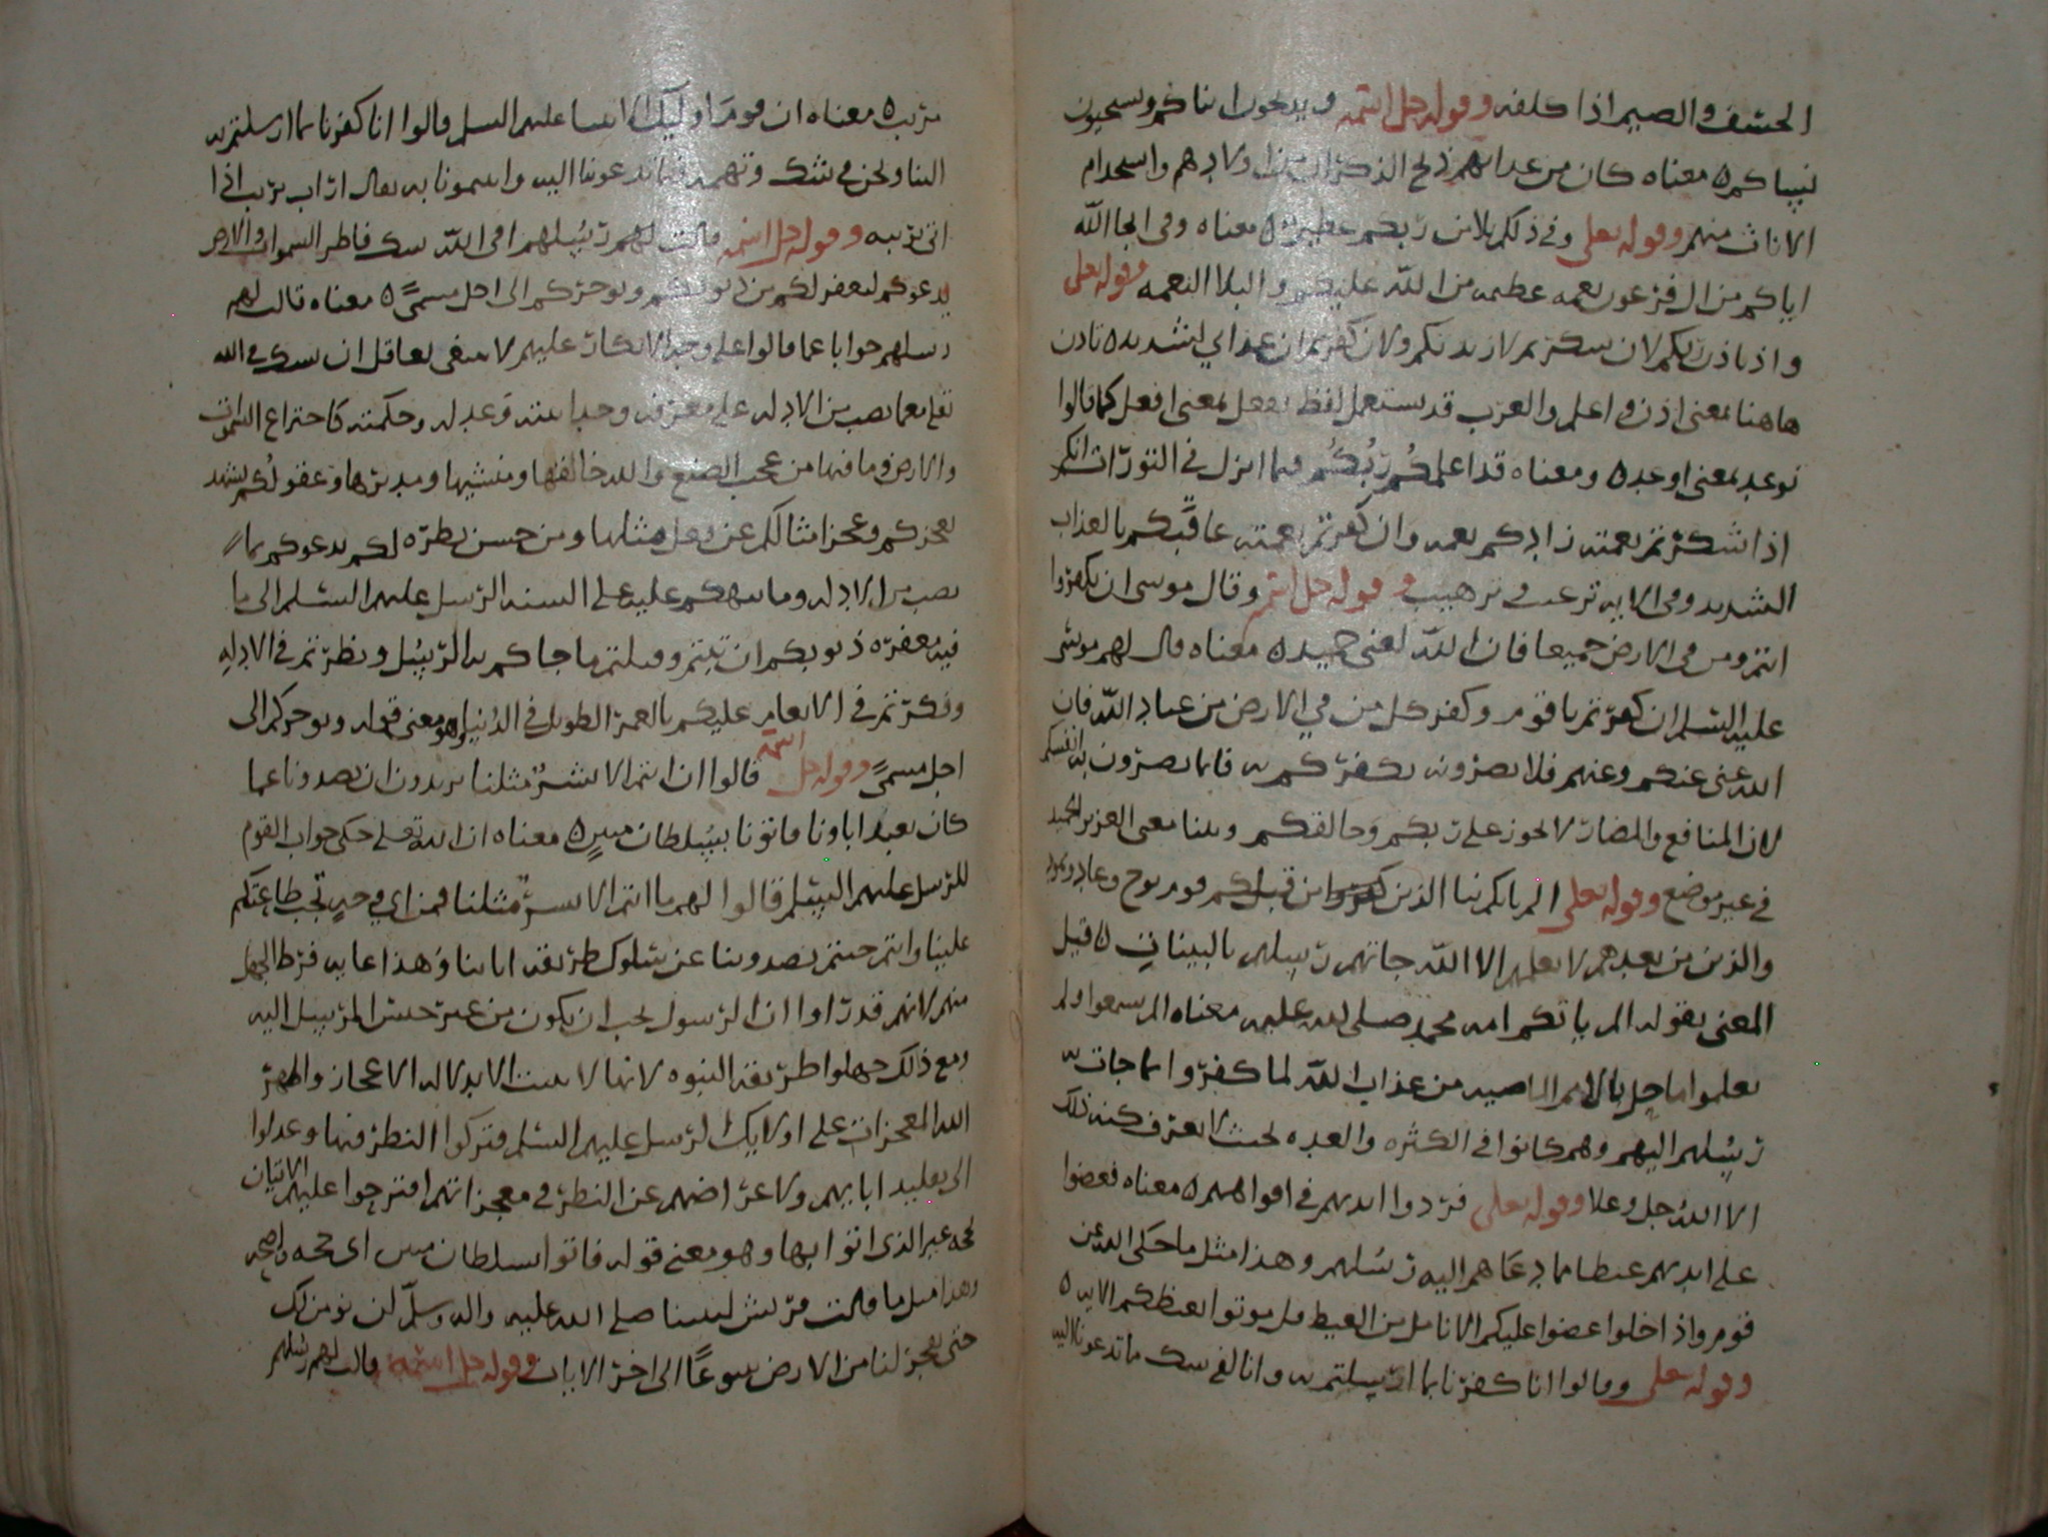 الخسف والضيم اذا كلفه وقوله جل اسمه ويذبحون ابناكم ويستحيون
نسآكم ه معناه كان من عذابهم ذبح الذكران من اولادهم واستخدام
الاناث منهم وقوله تعلى وفي ذلكم بلا من ربكم عظيم ه معناه وفي انجا الله
اياكم من ال فرعون نعمه عظيمه من الله عليكم والبلا النعمه وقوله تعلى
واذ تاذن ربكم لان شكرتم لازيدنكم ولان كفرتم ان عذابي لشديد ه تاذن
هاهنا بمعنى اذن واعلم والعرب قد يستعمل لفظ تفعل بمعنى افعل كما قالوا
توعد بمعنى اوعد ه ومعناه قد اعلمكم ربكم فيما انزل في التورات انكم
اذا شكرتم نعمته زادكم نعمه وان كفرتم نعمته عاقبكم بالعذاب
الشديد وفي الايه ترغيب وترهيب وقوله جل اسمه وقال موسى ان تكفروا
انتم ومن في الارض جميعا فان الله لغني حميد ه معناه قال لهم موسى
عليه السلم ان كفرتم يا قوم وكفر كل من في الارض من عباد الله فان
الله غني عنكم وعنهم فلا تضرونه بكفركم به فانما تضرون به انفسكم
لان المنافع والمضار لا تجوز على ربكم وخالقكم وبينا معنى العزيز الحميد
في غير موضع وقوله تعلى الم ياتكم نبا الذين من قبلكم قوم نوح وعاد وثمود
والذين من بعدهم لا يعلمهم الا الله جاتهم رسلهم بالبينات ه قيل
المعنى بقوله الم ياتكم امه محمد صلى الله عليه معناه الم يسمعوا ولم
يعلموا ما حل بالامم الماضيه من عذاب الله لما كفروا بما جات به
رسلهم اليهم وهم كانوا في الكثره والعده بحيث لا يعرف كنه ذلك
الا الله جل وعلا وقوله تعلى فردوا ايديهم في افواههم ه معناه فعضوا
على ايديهم غيظا مما دعاهم اليه رسلهم وهذا مثل ما حكى الله عن
قوم واذا خلوا عضوا عليكم الانامل من الغيظ قل موتوا بغيظكم الايه ه
وقوله تعلى وقالوا انا كفرنا بما ارسلتم به وانا لفي شك مما تدعوننا اليه
مريب ه معناه ان قوم اوليك الانبيا عليهم السلم قالوا انا كفرنا بما ارسلتم به
الينا ونحن في شك وتهمه فيما تدعوننا اليه واسمونا به يقال اراب يريب اذا
اتى بريبه وقوله جل اسمه قالت لهم رسلهم افي الله شك فاطر السموات والارض
يدعوكم ليغفر لكم من ذنوبكم ويوخركم الى اجل مسمى ه معناه قالت لهم
رسلهم جوابا عما قالوا على وجه الانكار عليهم لا ينبغي لعاقل ان يشك في الله
تعلى مع ما نصب من الادله على معرفته ووحدانيته وعدله وحكمته كاختراع السموات
والارض وما فيها من عجيب الصنع والله خالقها ومنشيها ومدبرها وعقولكم يشهد
بعجزكم وعجز امثالكم عن فعل مثلها ومن حسن نظره لكم يدعوكم بما
نصب من الادله وما نبهكم عليه على السنه الرسل عليهم السلم الى ما
فيه مغفره ذنوبكم ان تبتم وقبلتم ما جاكم به الرسل ونظرتم في الادله
وفكرتم في الانعام عليكم بالعمر الطويل في الدنيا وهو معنى قوله ويوخركم الى
اجل مسمى وقوله جل اسمه قالوا ان انتم الا بشر مثلنا تريدون ان تصدونا عما
كان يعبد اباونا فاتونا بسلطان مبين ه معناه ان الله تعلى حكى جواب القوم
للرسل عليهم السلم فقالوا لهم ما انتم الا بشر مثلنا فمن اي وجه تجب طاعتكم
علينا وانتم جيتم تصدوننا عن سلوك طريقه اباينا وهذا غايه فرط الجهل
منهم لانهم قد راوا ان الرسول يجب ان يكون من غير جنس المرسل اليه
ومع ذلك جهلوا طريقه النبوه لانها لا يثبت الا بدلاله الاعجاز واظهر
الله المعجزات على اولايك الرسل عليهم السلم فتركوا النظر فيها وعدلوا
الى تقليد ابايهم ولاعراضهم عن النظر في معجزاتهم اقترحوا عليهم الاتيان
بحجه غير الذي اتوا بها وهو معنى قوله فاتوا بسلطان مبين اي حجه واضحه
وهذا مثل ما قالت قريش لنبينا صلى الله عليه واله وسلم لن نومن لك
حتى تفجر لنا من الارض ينبوعا الى اخر الايات وقوله جل اسمه قالت لهم رسلهم